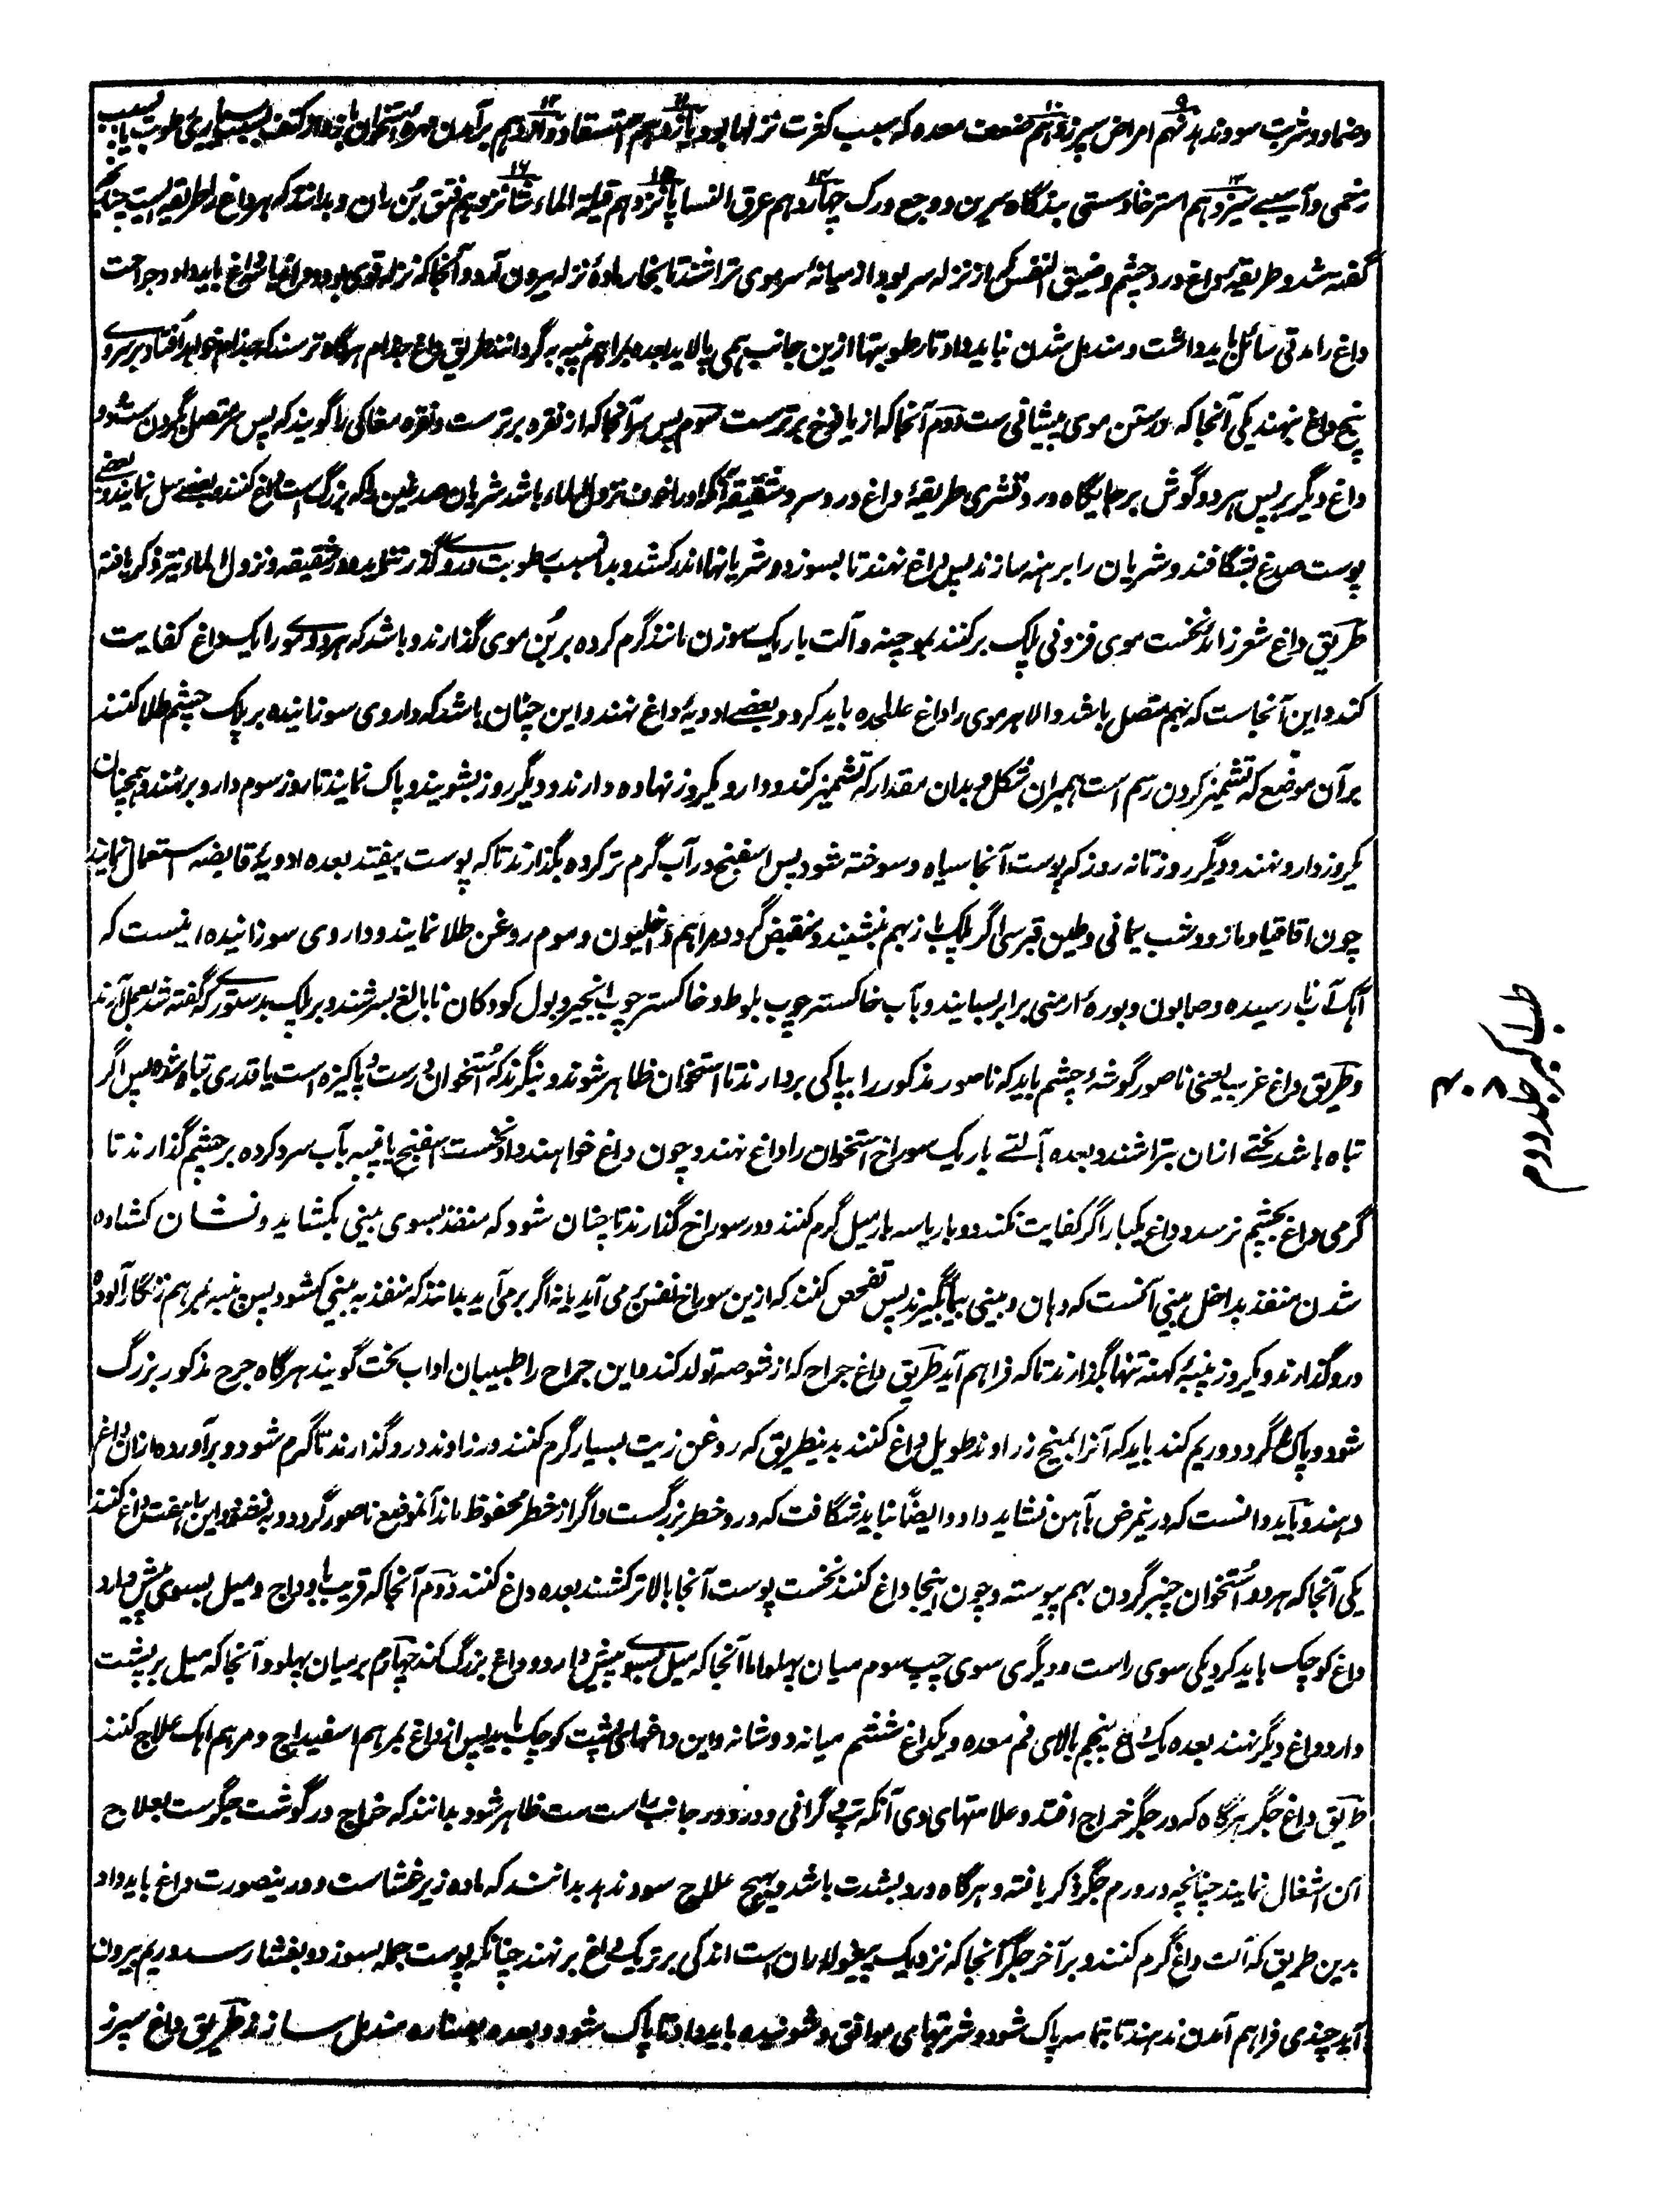 وضماد و شربت سود ندهد نهم امراض سپرز دهم ضعف معده که سبب کثرت نزلها بود یازدهم استسقا دوازدهم برآمدن مهره استخوان بازو از کتف بسبب بسیاری رطوبت یا بسبب
زخمی و آسیبی سیزدهم استرخا و سستی بندگاه سرین و وجع ورک چهاردهم عرق النسا پانزدهم قیلة الماء شانزدهم فتق بُن ران و بدانند که هر داغ را طریقه ایست چنانکه
گفته شد و طریقهٔ داغ درد چشم و ضیق النفس که از نزله سر بود از میانهٔ سر موی تراشند تا بخار مادهٔ نزله بیرون آید و آنجا که نزله قوی بود داغ باید داد و جراحت
داغ را مدتی سائل باید داشت و مندمل شدن نباید داد تا رطوبتها ازین جانب همی پالاید بعده بمراهم پنبه به گردانند طریق داغ جذام هرگاه ترسند که جذام خواهد افتاد بر سر وی
پنج داغ نهند یکی آنجا که رستن موی پیشانی ست دوم آنجا که از یافوخ برترست سوم پس سر آنجا که از نقره برترست و نقره مغاکی را گویند که پس سر متصل گردن ست و دو
داغ دیگر بر پس هر دو گوش بر جایگاه درز قشری طریقهٔ داغ درد سر و شقیقه آنکه او را خوف نزول الماء باشد شریان صدغین را که بزرگ ست داغ کنند و بعضی سل نمایند و بعضی
پوست صدغ بشگافند و شریان را برهنه سازند پس داغ نهند تا بسوزد و شریانها اندر کشد و بدانسبب رطوبت در وگذر نتواند و در شقیقه و نزول الماء نیز ذکر یافته
طریق داغ شعر زائد نخست موی فزونی پلک برکنند بموچینه و آلت باریک سوزن مانند گرم کرده بر بُن موی گذارند و باشد که هر دو مو را یک داغ کفایت
کند و این آنجاست که بهم متصل باشد والا هر موی را داغ علحده باید کرد و بعضی ادویهٔ داغ نهند و این چنان باشد که داروی سوزاننده بر پلک چشم طلا کنند
بر آن موضع که تشمیر کردن رسم است همبران شکل و بدان مقدار که تشمیر کنند و دارو یکروز نهاده دارند و دیگر روز بشویند و پاک نمایند تا روز سوم دارو برنهند و همچنان
یکروز دارو نهند و دیگر روز تا نه روز که پوست آنجا سیاه و سوخته شود پس اسفنج در آب گرم تر کرده بگذارند تا که پوست بیفتد بعده ادویهٔ قابضه استعمال نمایند
چون اقاقیا و مازو و شب یمانی و طین قبرسی اگر پلک باز بهم ننشیند و منقبض گردد مراهم داخلیون و موم روغن طلا نمایند و داروی سوزانیده اینست که
آهک آب نارسیده و صابون و بورهٔ ارمنی برابر بسایند و بآب خاکستر چوب بلوط و خاکستر چوب انجیر و بول کودکان نابالغ بسرشند و بر پلک بدستوری که گفته شد بعمل آرند
و طریق داغ غرب یعنی ناصور گوشهٔ چشم باید که ناصور مذکور را بپاکی بردارند تا استخوان ظاهر شود و بنگرند که اُستخوان درست و پاکیزه است یا قدری تباه شده پس اگر
تباه باشد لختی ازان بتراشند و بعده بآلتی باریک سوراخ استخوان را داغ نهند و چون داغ خواهند داد نخست اسفنج یا پنبه بآب سرد کرده بر چشم گذارند تا
گرمی داغ بچشم نرسد و داغ یکبار اگر کفایت نکند دو بار یا سه بار میل گرم کنند و در سوراخ گذارند تا چنان شود که منفذ بسوی بینی بکشاید و نشان کشاده
شدن منفذ بداخل بینی آنست که دهان و بینی بیمار بگیرند پس تفحص کنند که ازین سوراخ نفس می آید یا نه اگر برمی آید بدانند که منفذ به بینی کشود پس پنبه بمرهم زنگار آلوده
درو گذارند و یکروز پنبهٔ کهنه تنها بگذارند تا که فراهم آید طریق داغ جراح که از شوصه تولد کند و این جراح را طبیبان ... گویند هرگاه جرح مذکور بزرگ
شود و پاک نگردد و ریم کند باید که آنرا ببیخ زراوند طویل داغ کنند بدینطریق که روغن زیت بسیار گرم کنند و زراوند درو گذارند تا گرم شود و برآورده ازان داغ
دهند و باید دانست که درینمرض بآهن نشاید داد و ایضاً نباید شگافت که درو خطر بزرگست و اگر از خطر محفوظ ماند آنموضع ناصور گردد و به نشود و این را هفت داغ کنند
یکی آنجا که هر دو اُستخوان چنبر گردن بهم پیوسته و چون اینجا داغ کنند نخست پوست آنجا بالاتر کشند بعده داغ کنند دوم آنجا که قریب باوداج و میل بسوی پیش دارد
داغ کوچک باید کرد یکی سوی راست و دیگری سوی چپ سوم میان پهلو اما آنجا که میل بسوی پیش دارد دو داغ بزرگ کند چهارم بر میان پهلو و آنجا که میل بر پشت
دارد داغ دیگر نهند بعده یک داغ پنجم بالای فم معده و یکداغ ششم میانه دو شانه و این داغهای پشت کوچک باید پس از داغ بمرهم اسفیداج و مرهم آهک علاج کنند
طریق داغ جگر هرگاه که در جگر خراج افتد و علامتهای وی آنکه تپ و گرانی و درد در جانب راست ست ظاهر شود بدانند که خراج در گوشت جگرست بعلاج
آن اشتغال نمایند چنانچه در ورم جگر ذکر یافته و هرگاه درد بشدت باشد و هیچ علاج سود ندهد بدانند که ماده زیر غشاست و درینصورت داغ باید داد
بدین طریق که آلت داغ گرم کنند و بر آخر جگر آنجا که نزدیک بیغوله ران است اندکی برتر یک داغ برنهند چنانکه پوست جمله بسوزد و بغشا رسد و ریم بیرون
آید چندی فراهم آمدن ندهند تا بتمامه پاک شود و شربتهای موافق و شوینده باید داد تا پاک شود و بعده ... مندمل سازند طریق داغ سپرز
طب اکبر
جلد دوم